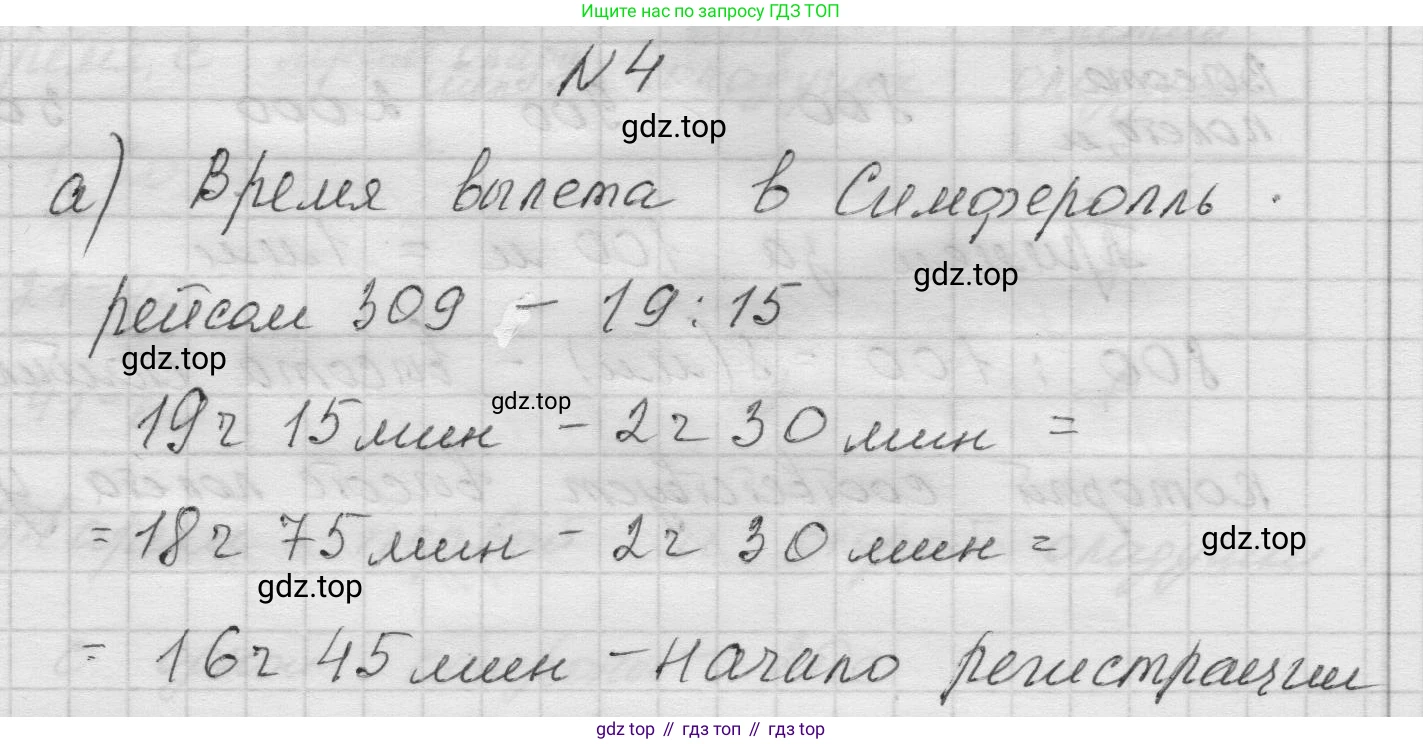 Ищите нас по запросу ГДЗ ТОП
N 4
gdz.top
а) Время вылета в Симферополь
gdz.top
рейсом 309 – 19:15
gdz.top
gdz.top
19ч 15 мин – 2ч 30 мин =
= 18ч 75 мин – 2ч 30 мин =
gdz.top
gdz.top
= 16ч 45 мин – начало регистрации
gdz.top // гдз топ // gdz.top